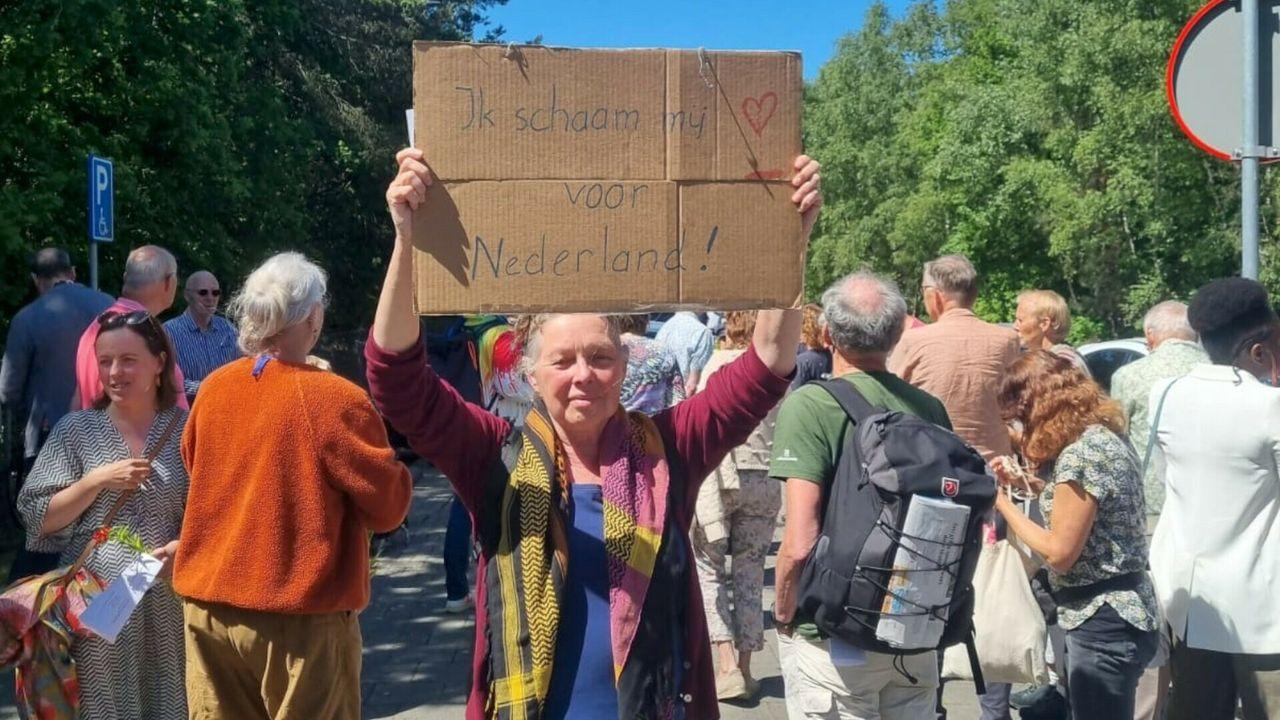 P
Ik schaam mij
voor
Nederland!